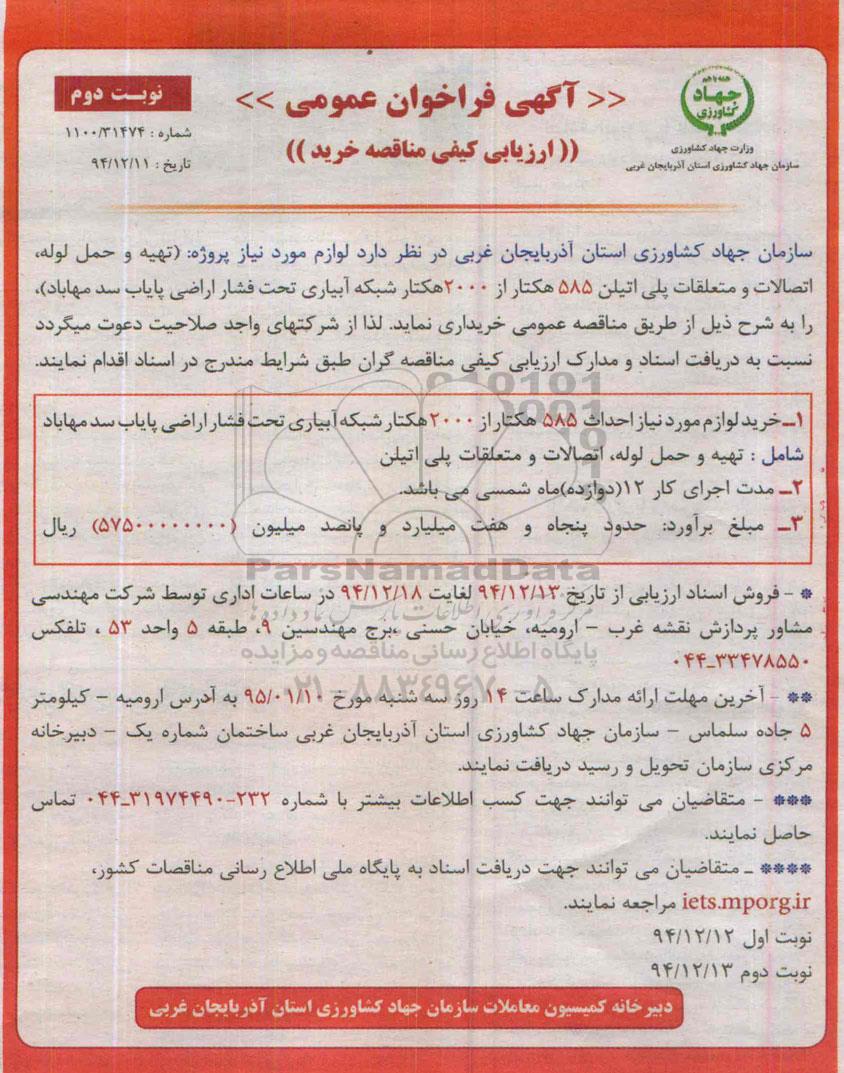 همه با هم
جهاد
کشاورزی
وزارت جهاد کشاورزی
سازمان جهاد کشاورزی استان آذربایجان غربی
<< آگهی فراخوان عمومی >>
(( ارزیابی کیفی مناقصه خرید ))
نوبت دوم
شماره : ۱۱۰۰/۳۱۴۷۴
تاریخ : ۹۴/۱۲/۱۱
سازمان جهاد کشاورزی استان آذربایجان غربی در نظر دارد لوازم مورد نیاز پروژه: (تهیه و حمل لوله،
اتصالات و متعلقات پلی اتیلن ۵۸۵ هکتار از ۲۰۰۰هکتار شبکه آبیاری تحت فشار اراضی پایاب سد مهاباد)،
را به شرح ذیل از طریق مناقصه عمومی خریداری نماید. لذا از شرکتهای واجد صلاحیت دعوت میگردد
نسبت به دریافت اسناد و مدارک ارزیابی کیفی مناقصه گران طبق شرایط مندرج در اسناد اقدام نمایند.
۱ــ خرید لوازم مورد نیاز احداث ۵۸۵ هکتار از ۲۰۰۰هکتار شبکه آبیاری تحت فشار اراضی پایاب سد مهاباد
شامل : تهیه و حمل لوله، اتصالات و متعلقات پلی اتیلن
۲ــ مدت اجرای کار ۱۲(دوازده)ماه شمسی می باشد.
۳ــ مبلغ برآورد: حدود پنجاه و هفت میلیارد و پانصد میلیون (۵۷۵۰۰۰۰۰۰۰۰) ریال
ParsNamadData
* - فروش اسناد ارزیابی از تاریخ ۹۴/۱۲/۱۳ لغایت ۹۴/۱۲/۱۸ در ساعات اداری توسط شرکت مهندسی
مشاور پردازش نقشه غرب – ارومیه، خیابان حسنی ،برج مهندسین ۹، طبقه ۵ واحد ۵۳ ، تلفکس
۰۴۴-۳۳۴۷۸۵۵۰
پایگاه اطلاع رسانی مناقصه و مزایده
۰۲۱-۸۸۳۴۹۶۷۰-۵
** - آخرین مهلت ارائه مدارک ساعت ۱۴ روز سه شنبه مورخ ۹۵/۰۱/۱۰ به آدرس ارومیه – کیلومتر
۵ جاده سلماس – سازمان جهاد کشاورزی استان آذربایجان غربی ساختمان شماره یک – دبیرخانه
مرکزی سازمان تحویل و رسید دریافت نمایند.
*** - متقاضیان می توانند جهت کسب اطلاعات بیشتر با شماره ۲۳۲-۳۱۹۷۴۴۹۰-۰۴۴ تماس
حاصل نمایند.
**** ـ متقاضیان می توانند جهت دریافت اسناد به پایگاه ملی اطلاع رسانی مناقصات کشور،
iets.mporg.ir مراجعه نمایند.
نوبت اول ۹۴/۱۲/۱۲
نوبت دوم ۹۴/۱۲/۱۳
دبیرخانه کمیسیون معاملات سازمان جهاد کشاورزی استان آذربایجان غربی